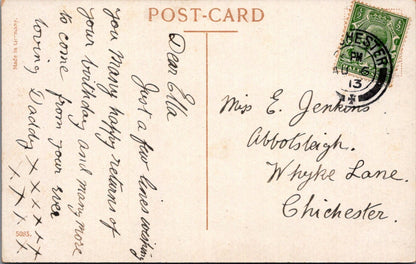 POST-CARD
Made in Germany.
Dear Ella
Just a few lines wishing
you Many happy returns of
your birthday and many more
to come from your ever
loving Daddy x x x x x
x x x x
5085.
Miss E. Jenkins
Abbotsleigh.
Whyke Lane.
Chichester.
CHESTER
PM
AU 6
13